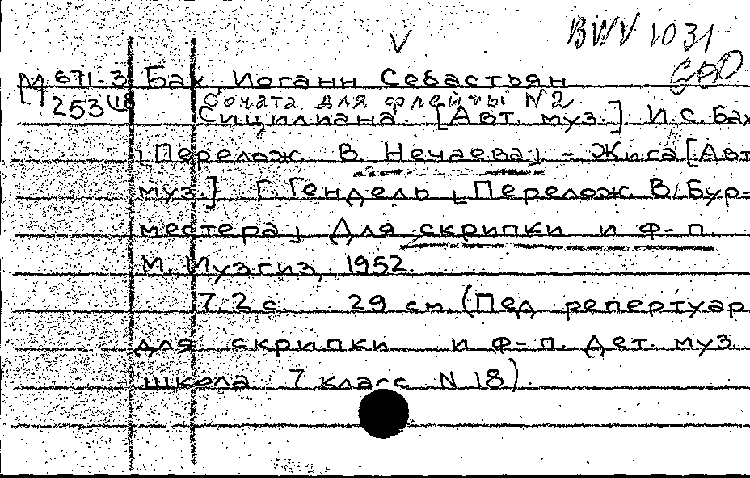 BWV 1031
V
М 671-3 Бах Иоганн Себастьян
253 (18 Соната для флейты N 2
Сицилиана. [Авт. муз.] И.С. Бах
[Перелож. В. Нечаева] - Жига [Авт.
муз.] Г. Гендель [Перелож. В. Бур-
местера] Для скрипки и ф-п.
М. Музгиз, 1952.
7,2 с. 29 см. (Пед репертуар
для скрипки и ф-п. Дет. муз
школа 7 класс N 18).